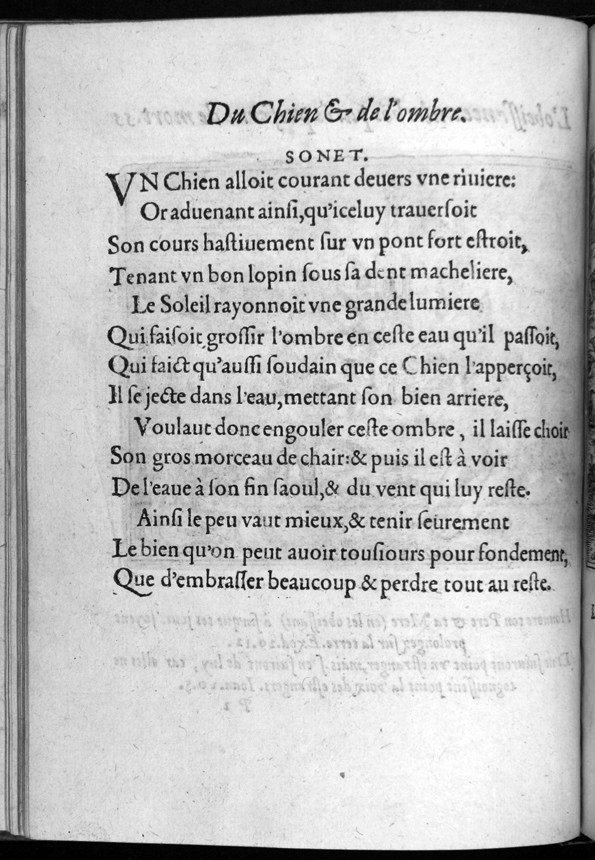 Du Chien & de l'ombre.
SONET.
VN Chien alloit courant deuers vne riuiere:
Or aduenant ainſi, qu'iceluy trauerſoit
Son cours haſtiuement ſur vn pont fort eſtroit,
Tenant vn bon lopin ſous ſa dent macheliere,
Le Soleil rayonnoit vne grande lumiere
Qui faiſoit groſſir l'ombre en ceſte eau qu'il paſſoit,
Qui faict qu'auſſi ſoudain que ce Chien l'apperçoit,
Il ſe jecte dans l'eau, mettant ſon bien arriere,
Voulaut donc engouler ceſte ombre, il laiſſe choir
Son gros morceau de chair: & puis il eſt à voir
De l'eaue à ſon fin ſaoul, & du vent qui luy reſte.
Ainſi le peu vaut mieux, & tenir ſeurement
Le bien qu'on peut auoir touſiours pour fondement,
Que d'embraſſer beaucoup & perdre tout au reſte.